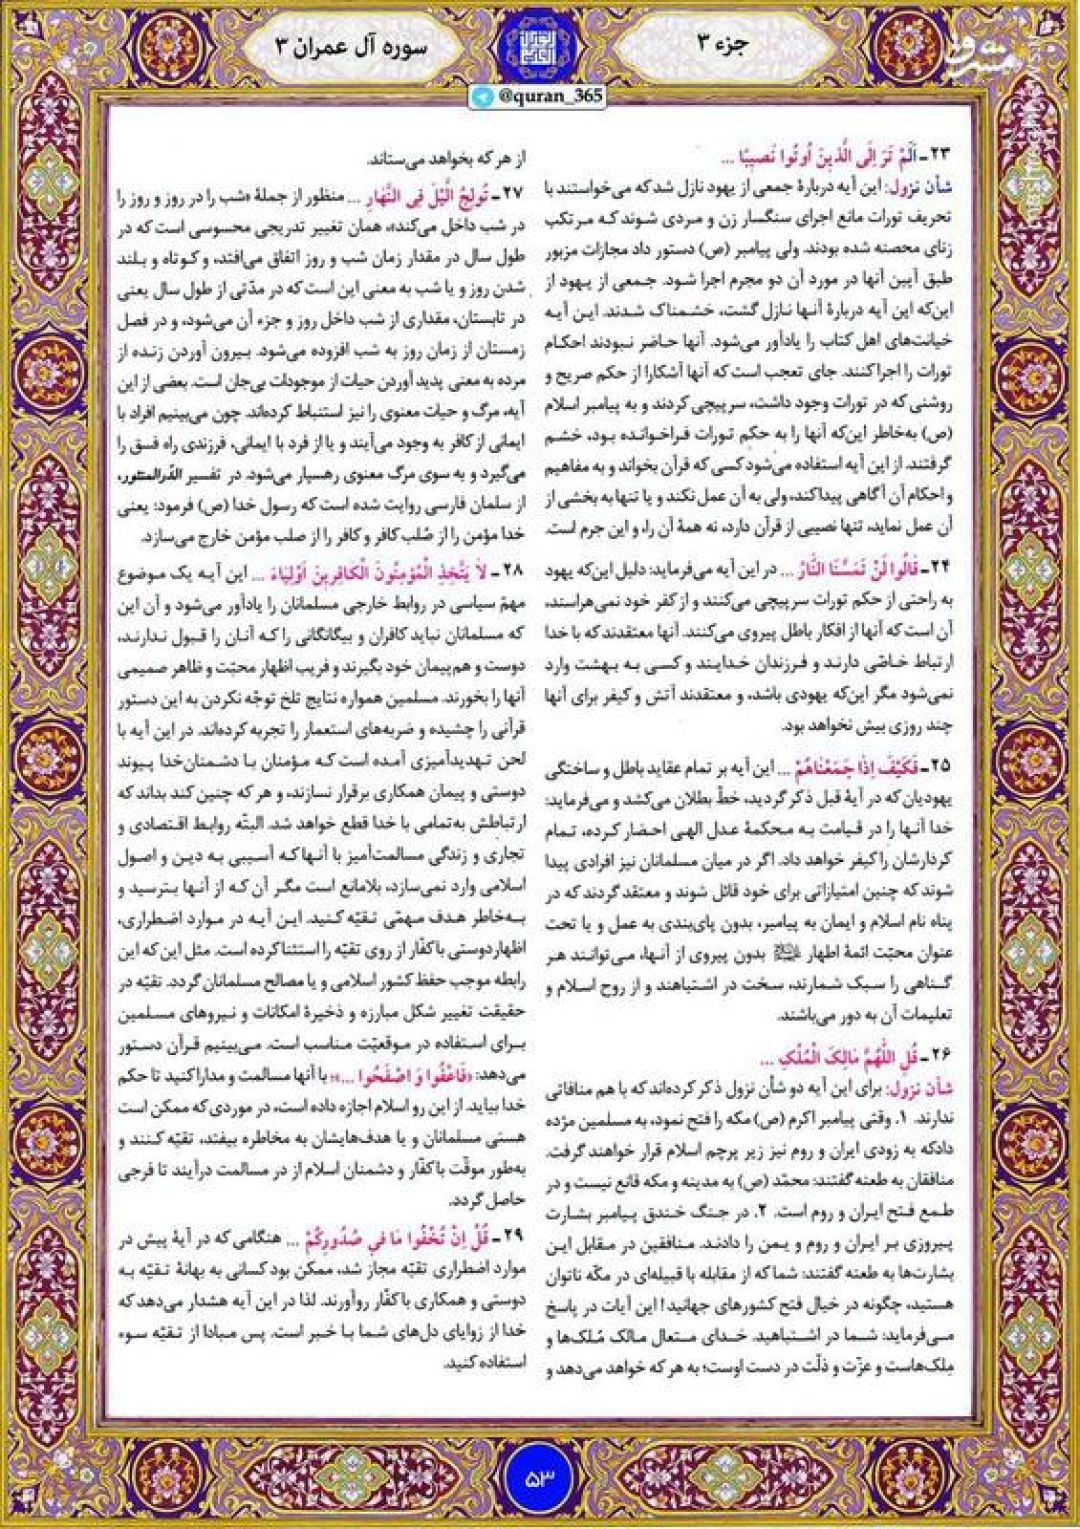 جزء ۳
سوره آل عمران ۳
@quran_365
مشرق
۲۳ـ اَلَمْ تَرَ اِلَی الَّذِینَ اُوتُوا نَصِیبًا ...
شأن نزول: این آیه دربارهٔ جمعی از یهود نازل شد که می‌خواستند با
تحریف تورات مانع اجرای سنگسار زن و مردی شوند که مرتکب
زنای محصنه شده بودند. ولی پیامبر (ص) دستور داد مجازات مزبور
طبق آیین آنها در مورد آن دو مجرم اجرا شود. جمعی از یهود از
این‌که این آیه دربارهٔ آنها نازل گشت، خشمناک شدند. این آیه
خیانت‌های اهل کتاب را یادآور می‌شود. آنها حاضر نبودند احکام
تورات را اجرا کنند. جای تعجب است که آنها آشکارا از حکم صریح و
روشنی که در تورات وجود داشت، سرپیچی کردند و به پیامبر اسلام
(ص) به‌خاطر این‌که آنها را به حکم تورات فراخوانده بود، خشم
گرفتند. از این آیه استفاده می‌شود کسی که قرآن بخواند و به مفاهیم
و احکام آن آگاهی پیدا کند، ولی به آن عمل نکند و یا تنها به بخشی از
آن عمل نماید، تنها نصیبی از قرآن دارد، نه همهٔ آن را، و این جرم است.
۲۴ـ قَالُوا لَنْ تَمَسَّنَا النَّارُ ... در این آیه می‌فرماید: دلیل این‌که یهود
به راحتی از حکم تورات سرپیچی می‌کنند و از کفر خود نمی‌هراستد،
آن است که آنها از افکار باطل پیروی می‌کنند. آنها معتقدند که با خدا
ارتباط خاصّی دارند و فرزندان خدایند و کسی به بهشت وارد
نمی‌شود مگر این‌که یهودی باشد، و معتقدند آتش و کیفر برای آنها
چند روزی بیش نخواهد بود.
۲۵ـ فَکَیْفَ اِذَا جَمَعْنَاهُمْ ... این آیه بر تمام عقاید باطل و ساختگی
یهودیان که در آیهٔ قبل ذکر گردید، خطّ بطلان می‌کشد و می‌فرماید:
خدا آنها را در قیامت به محکمهٔ عدل الهی احضار کرده، تمام
کردارشان را کیفر خواهد داد. اگر در میان مسلمانان نیز افرادی پیدا
شوند که چنین امتیازاتی برای خود قائل شوند و معتقد گردند که در
پناه نام اسلام و ایمان به پیامبر، بدون پای‌بندی به عمل و یا تحت
عنوان محبّت ائمهٔ اطهار بدون پیروی از آنها، می‌توانند هر
گناهی را سبک شمارند، سخت در اشتباهند و از روح اسلام و
تعلیمات آن به دور می‌باشند.
۲۶ـ قُلِ اللّٰهُمَّ مَالِکَ الْمُلْکِ ...
شأن نزول: برای این آیه دو شأن نزول ذکر کرده‌اند که با هم منافاتی
ندارند. ۱. وقتی پیامبر اکرم (ص) مکه را فتح نمود، به مسلمین مژده
داد که به زودی ایران و روم نیز زیر پرچم اسلام قرار خواهند گرفت.
منافقان به طعنه گفتند: محمّد (ص) به مدینه و مکه قانع نیست و در
طمع فتح ایران و روم است. ۲. در جنگ خندق پیامبر بشارت
پیروزی بر ایران و روم و یمن را دادند. منافقین در مقابل این
بشارت‌ها به طعنه گفتند: شما که از مقابله با قبیله‌ای در مکّه ناتوان
هستید، چگونه در خیال فتح کشورهای جهانید! این آیات در پاسخ
می‌فرماید: شما در اشتباهید. خدای متعال مالک مُلک‌ها و
مِلک‌هاست و عزّت و ذلّت در دست اوست؛ به هر که خواهد می‌دهد و
از هر که بخواهد می‌ستاند.
۲۷ـ تُولِجُ الَّیْلَ فِی النَّهَارِ ... منظور از جملهٔ «شب را در روز و روز را
در شب داخل می‌کند»، همان تغییر تدریجی محسوسی است که در
طول سال در مقدار زمان شب و روز اتفاق می‌افتد، و کوتاه و بلند
شدن روز و یا شب به معنی این است که در مدّتی از طول سال یعنی
در تابستان، مقداری از شب داخل روز و جزء آن می‌شود، و در فصل
زمستان از زمان روز به شب افزوده می‌شود. بیرون آوردن زنده از
مرده به معنی پدید آوردن حیات از موجودات بی‌جان است. بعضی از این
آیه، مرگ و حیات معنوی را نیز استنباط کرده‌اند. چون می‌بینیم افراد با
ایمانی از کافر به وجود می‌آیند و یا از فرد با ایمانی، فرزندی راه فسق را
می‌گیرد و به سوی مرگ معنوی رهسپار می‌شود. در تفسیر الدّرالمنثور،
از سلمان فارسی روایت شده است که رسول خدا (ص) فرمود: یعنی
خدا مؤمن را از صُلب کافر و کافر را از صلب مؤمن خارج می‌سازد.
۲۸ـ لَا یَتَّخِذِ الْمُؤْمِنُونَ الْکَافِرِینَ اَوْلِیَاءَ ... این آیه یک موضوع
مهمّ سیاسی در روابط خارجی مسلمانان را یادآور می‌شود و آن این
که مسلمانان نباید کافران و بیگانگانی را که آنان را قبول ندارند،
دوست و هم‌پیمان خود بگیرند و فریب اظهار محبّت و ظاهر صمیمی
آنها را بخورند. مسلمین همواره نتایج تلخ توجّه نکردن به این دستور
قرآنی را چشیده و ضربه‌های استعمار را تجربه کرده‌اند. در این آیه با
لحن تهدیدآمیزی آمده است که مؤمنان با دشمنان خدا پیوند
دوستی و پیمان همکاری برقرار نسازند، و هر که چنین کند بداند که
ارتباطش به‌تمامی با خدا قطع خواهد شد. البتّه روابط اقتصادی و
تجاری و زندگی مسالمت‌آمیز با آنها که آسیبی به دین و اصول
اسلامی وارد نمی‌سازد، بلامانع است مگر آن که از آنها بترسید و
به‌خاطر هدف مهمّی تقیّه کنید. این آیه در موارد اضطراری،
اظهار دوستی با کفّار از روی تقیّه را استثنا کرده است. مثل این که این
رابطه موجب حفظ کشور اسلامی و یا مصالح مسلمانان گردد. تقیّه در
حقیقت تغییر شکل مبارزه و ذخیرهٔ امکانات و نیروهای مسلمین
برای استفاده در موقعیّت مناسب است. می‌بینیم قرآن دستور
می‌دهد: «فَاعْفُوا وَ اصْفَحُوا ...»؛ با آنها مسالمت و مدارا کنید تا حکم
خدا بیاید. از این رو اسلام اجازه داده است، در موردی که ممکن است
هستی مسلمانان و یا هدف‌هایشان به مخاطره بیفتد، تقیّه کنند و
به‌طور موقّت با کفّار و دشمنان اسلام از در مسالمت درآیند تا فرجی
حاصل گردد.
۲۹ـ قُلْ اِنْ تُخْفُوا مَا فِی صُدُورِکُمْ ... هنگامی که در آیهٔ پیش در
موارد اضطراری تقیّه مجاز شد، ممکن بود کسانی به بهانهٔ تقیّه به
دوستی و همکاری با کفّار روآورند. لذا در این آیه هشدار می‌دهد که
خدا از زوایای دل‌های شما با خبر است. پس مبادا از تقیّه سوء
استفاده کنید.
۵۳